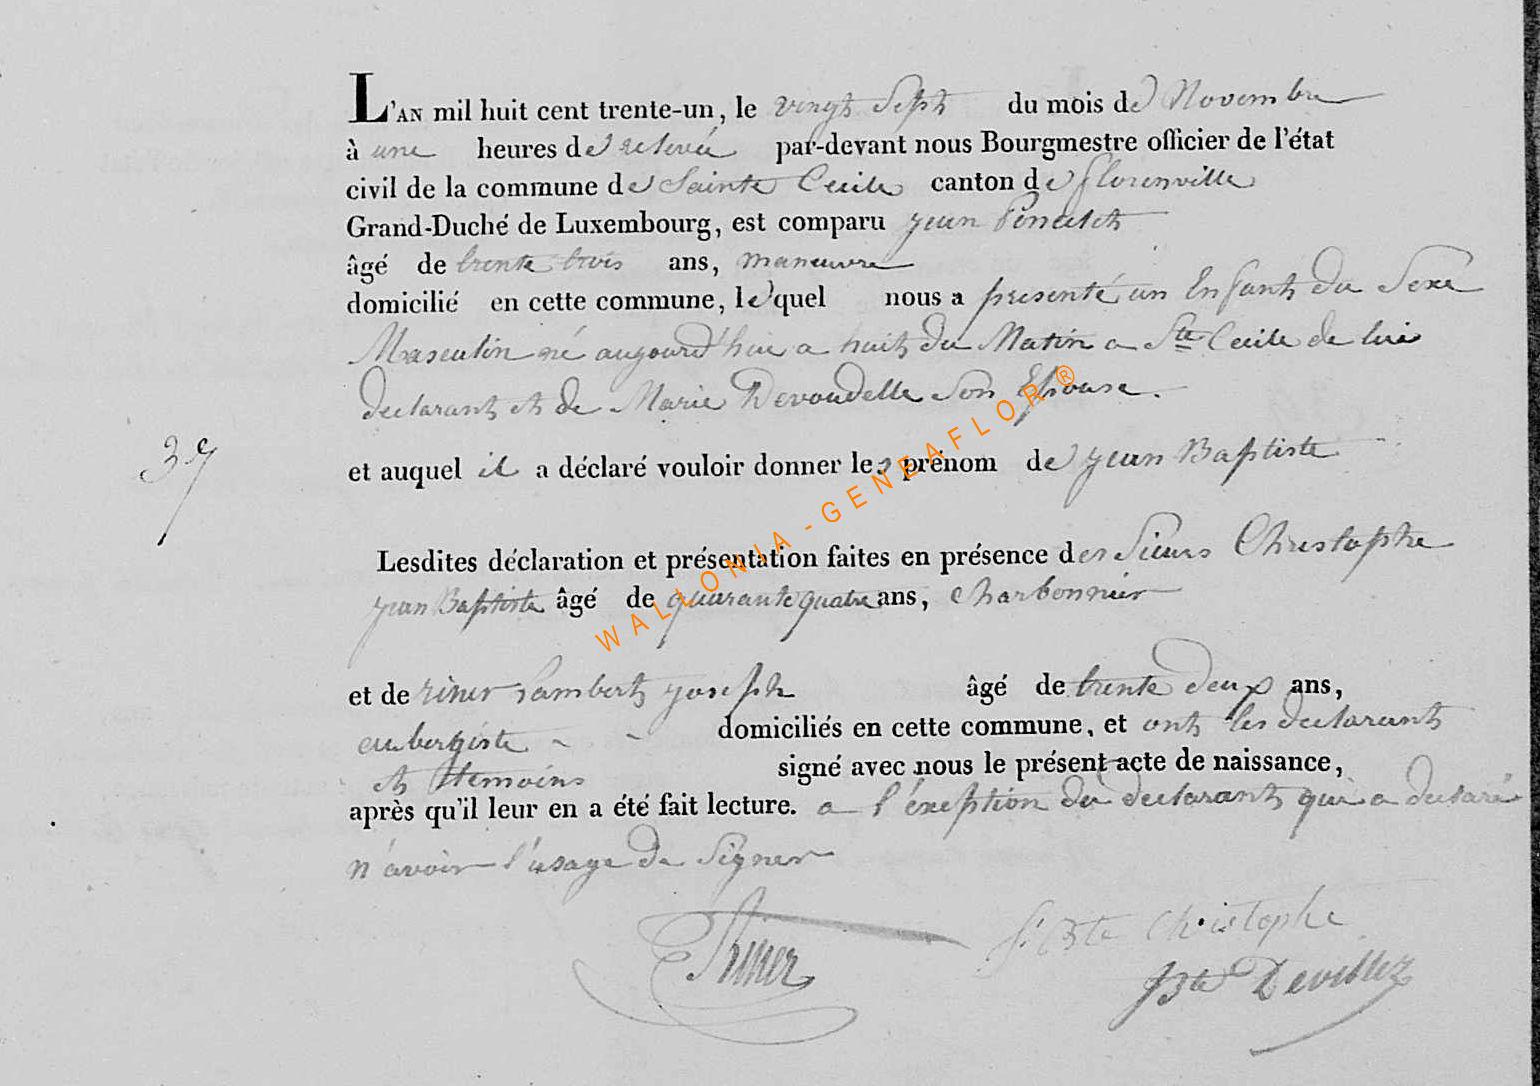 L'AN mil huit cent trente-un, le vingt Sept du mois de Novembre
à une heures de relevée par-devant nous Bourgmestre officier de l'état
civil de la commune de Sainte Cecile canton de florenville
Grand-Duché de Luxembourg, est comparu jean
âgé de trente trois ans, maneuvre
domicilié en cette commune, lequel nous a presenté un Enfant du Sexe
Masculin né aujourd'hui a huit du Matin a Ste Cecile de lui
declarant et de Marie Devoudelle Son Epouse.
37
et auquel il a déclaré vouloir donner les prénom de jean Baptiste
Lesdites déclaration et présentation faites en présence des Sieurs Christophe
jean Baptiste âgé de quarante quatre ans, charbonnier
et de riner Lambert joseph âgé de trente deux ans,
aubergiste - - domiciliés en cette commune, et ont les declarants
et temoins signé avec nous le présent acte de naissance,
après qu'il leur en a été fait lecture. a l'éxeption du declarant qui a declaré
n'avoir l'usage de Signer
Riner
J. Bte Christophe
JBte Devillez
WALLONIA - GENEAFLOR ®